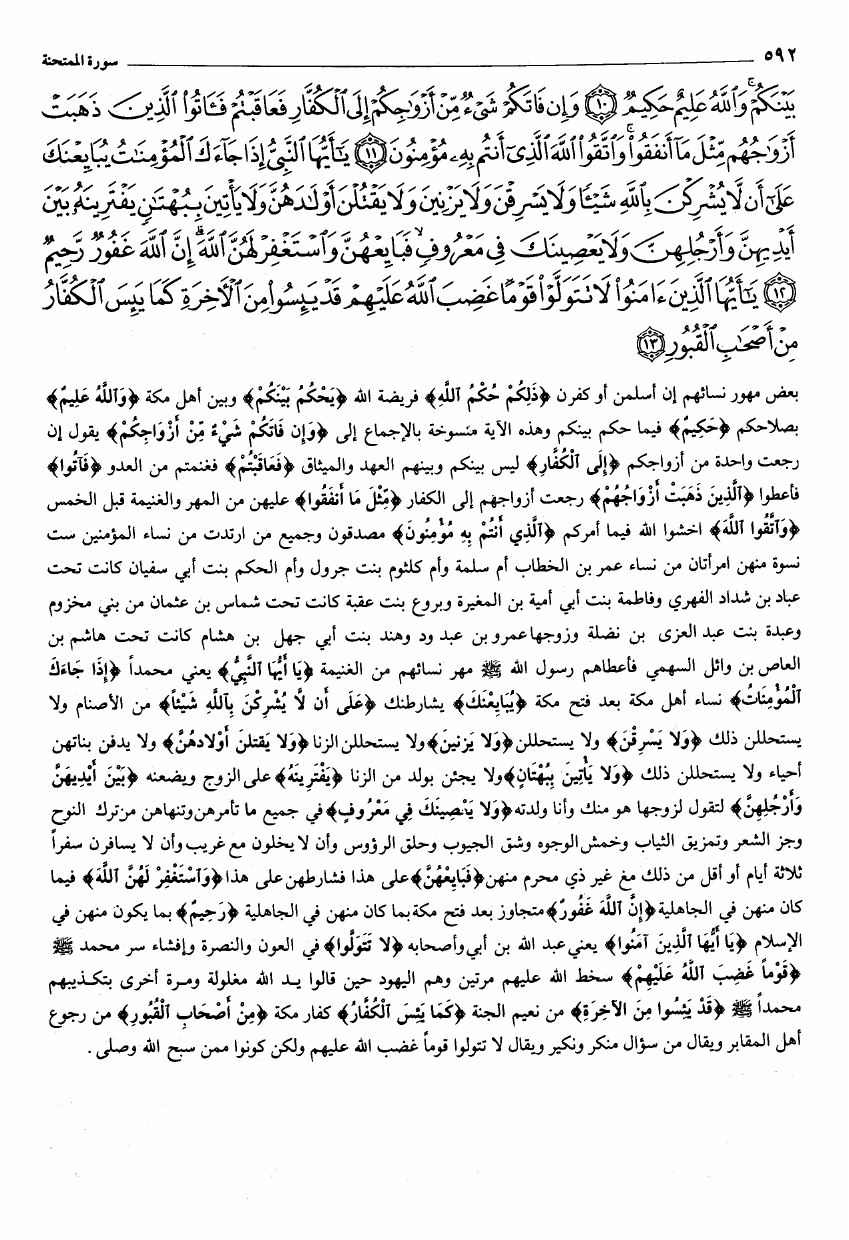 ٥٩٢ سورة الممتحنة
بَيْنَكُمْ وَٱللَّهُ عَلِيمٌ حَكِيمٌ ﴿١٠﴾ وَإِن فَاتَكُمْ شَىْءٌ مِّنْ أَزْوَٰجِكُمْ إِلَى ٱلْكُفَّارِ فَعَاقَبْتُمْ فَـَٔاتُوا۟ ٱلَّذِينَ ذَهَبَتْ
أَزْوَٰجُهُم مِّثْلَ مَآ أَنفَقُوا۟ وَٱتَّقُوا۟ ٱللَّهَ ٱلَّذِىٓ أَنتُم بِهِۦ مُؤْمِنُونَ ﴿١١﴾ يَـٰٓأَيُّهَا ٱلنَّبِىُّ إِذَا جَآءَكَ ٱلْمُؤْمِنَـٰتُ يُبَايِعْنَكَ
عَلَىٰٓ أَن لَّا يُشْرِكْنَ بِٱللَّهِ شَيْـًٔا وَلَا يَسْرِقْنَ وَلَا يَزْنِينَ وَلَا يَقْتُلْنَ أَوْلَـٰدَهُنَّ وَلَا يَأْتِينَ بِبُهْتَـٰنٍ يَفْتَرِينَهُۥ بَيْنَ
أَيْدِيهِنَّ وَأَرْجُلِهِنَّ وَلَا يَعْصِينَكَ فِى مَعْرُوفٍ ۙ فَبَايِعْهُنَّ وَٱسْتَغْفِرْ لَهُنَّ ٱللَّهَ ۖ إِنَّ ٱللَّهَ غَفُورٌ رَّحِيمٌ
﴿١٢﴾ يَـٰٓأَيُّهَا ٱلَّذِينَ ءَامَنُوا۟ لَا تَتَوَلَّوْا۟ قَوْمًا غَضِبَ ٱللَّهُ عَلَيْهِمْ قَدْ يَئِسُوا۟ مِنَ ٱلْـَٔاخِرَةِ كَمَا يَئِسَ ٱلْكُفَّارُ
مِنْ أَصْحَـٰبِ ٱلْقُبُورِ ﴿١٣﴾
بعض مهور نسائهم إن أسلمن أو كفرن ﴿ذَلِكُمْ حُكْمُ ٱللَّهِ﴾ فريضة الله ﴿يَحْكُمُ بَيْنَكُمْ﴾ وبين أهل مكة ﴿وَٱللَّهُ عَلِيمٌ﴾
بصلاحكم ﴿حَكِيمٌ﴾ فيما حكم بينكم وهذه الآية منسوخة بالإجماع إلى ﴿وَإِن فَاتَكُمْ شَيْءٌ مِّنْ أَزْوَاجِكُمْ﴾ يقول إن
رجعت واحدة من أزواجكم ﴿إِلَى ٱلْكُفَّارِ﴾ ليس بينكم وبينهم العهد والميثاق ﴿فَعَاقَبْتُمْ﴾ فغنمتم من العدو ﴿فَآتُوا﴾
فأعطوا ﴿ٱلَّذِينَ ذَهَبَتْ أَزْوَاجُهُمْ﴾ رجعت أزواجهم إلى الكفار ﴿مِّثْلَ مَا أَنفَقُوا﴾ عليهن من المهر والغنيمة قبل الخمس
﴿وَٱتَّقُوا ٱللَّهَ﴾ اخشوا الله فيما أمركم ﴿ٱلَّذِي أَنتُمْ بِهِ مُؤْمِنُونَ﴾ مصدقون وجميع من ارتدت من نساء المؤمنين ست
نسوة منهن امرأتان من نساء عمر بن الخطاب أم سلمة وأم كلثوم بنت جرول وأم الحكم بنت أبي سفيان كانت تحت
عباد بن شداد الفهري وفاطمة بنت أبي أمية بن المغيرة وبروع بنت عقبة كانت تحت شماس بن عثمان من بني مخزوم
وعبدة بنت عبد العزى بن نضلة وزوجها عمرو بن عبد ود وهند بنت أبي جهل بن هشام كانت تحت هاشم بن
العاص بن وائل السهمي فأعطاهم رسول الله ﷺ مهر نسائهم من الغنيمة ﴿يَا أَيُّهَا ٱلنَّبِيُّ﴾ يعني محمداً ﴿إِذَا جَاءَكَ
ٱلْمُؤْمِنَاتُ﴾ نساء أهل مكة بعد فتح مكة ﴿يُبَايِعْنَكَ﴾ يشارطنك ﴿عَلَى أَن لَّا يُشْرِكْنَ بِٱللَّهِ شَيْئاً﴾ من الأصنام ولا
يستحللن ذلك ﴿وَلَا يَسْرِقْنَ﴾ ولا يستحللن ﴿وَلَا يَزْنِينَ﴾ ولا يستحللن الزنا ﴿وَلَا يَقْتلنَ أَوْلَادهُنَّ﴾ ولا يدفن بناتهن
أحياء ولا يستحللن ذلك ﴿وَلَا يَأْتِينَ بِبُهْتَانٍ﴾ ولا يجئن بولد من الزنا ﴿يَفْتَرِينَهُ﴾ على الزوج ويضعنه ﴿بَيْنَ أَيْدِيهِنَّ
وَأَرْجُلِهِنَّ﴾ لتقول لزوجها هو منك وأنا ولدته ﴿وَلَا يَعْصِينَكَ فِي مَعْرُوفٍ﴾ في جميع ما تأمرهن وتنهاهن من ترك النوح
وجز الشعر وتمزيق الثياب وخمش الوجوه وشق الجيوب وحلق الرؤوس وأن لا يخلون مع غريب وأن لا يسافرن سفراً
ثلاثة أيام أو أقل من ذلك مع غير ذي محرم منهن ﴿فَبَايِعْهُنَّ﴾ على هذا فشارطهن على هذا ﴿وَٱسْتَغْفِرْ لَهُنَّ ٱللَّهَ﴾ فيما
كان منهن في الجاهلية ﴿إِنَّ ٱللَّهَ غَفُورٌ﴾ متجاوز بعد فتح مكة بما كان منهن في الجاهلية ﴿رَحِيمٌ﴾ بما يكون منهن في
الإسلام ﴿يَا أَيُّهَا ٱلَّذِينَ آمَنُوا﴾ يعني عبد الله بن أبي وأصحابه ﴿لَا تَتَوَلَّوا﴾ في العون والنصرة وإفشاء سر محمد ﷺ
﴿قَوْماً غَضِبَ ٱللَّهُ عَلَيْهِمْ﴾ سخط الله عليهم مرتين وهم اليهود حين قالوا يد الله مغلولة ومرة أخرى بتكذيبهم
محمداً ﷺ ﴿قَدْ يَئِسُوا مِنَ الآخِرَةِ﴾ من نعيم الجنة ﴿كَمَا يَئِسَ ٱلْكُفَّارُ﴾ كفار مكة ﴿مِنْ أَصْحَابِ ٱلْقُبُورِ﴾ من رجوع
أهل المقابر ويقال من سؤال منكر ونكير ويقال لا تتولوا قوماً غضب الله عليهم ولكن كونوا ممن سبح الله وصلى .